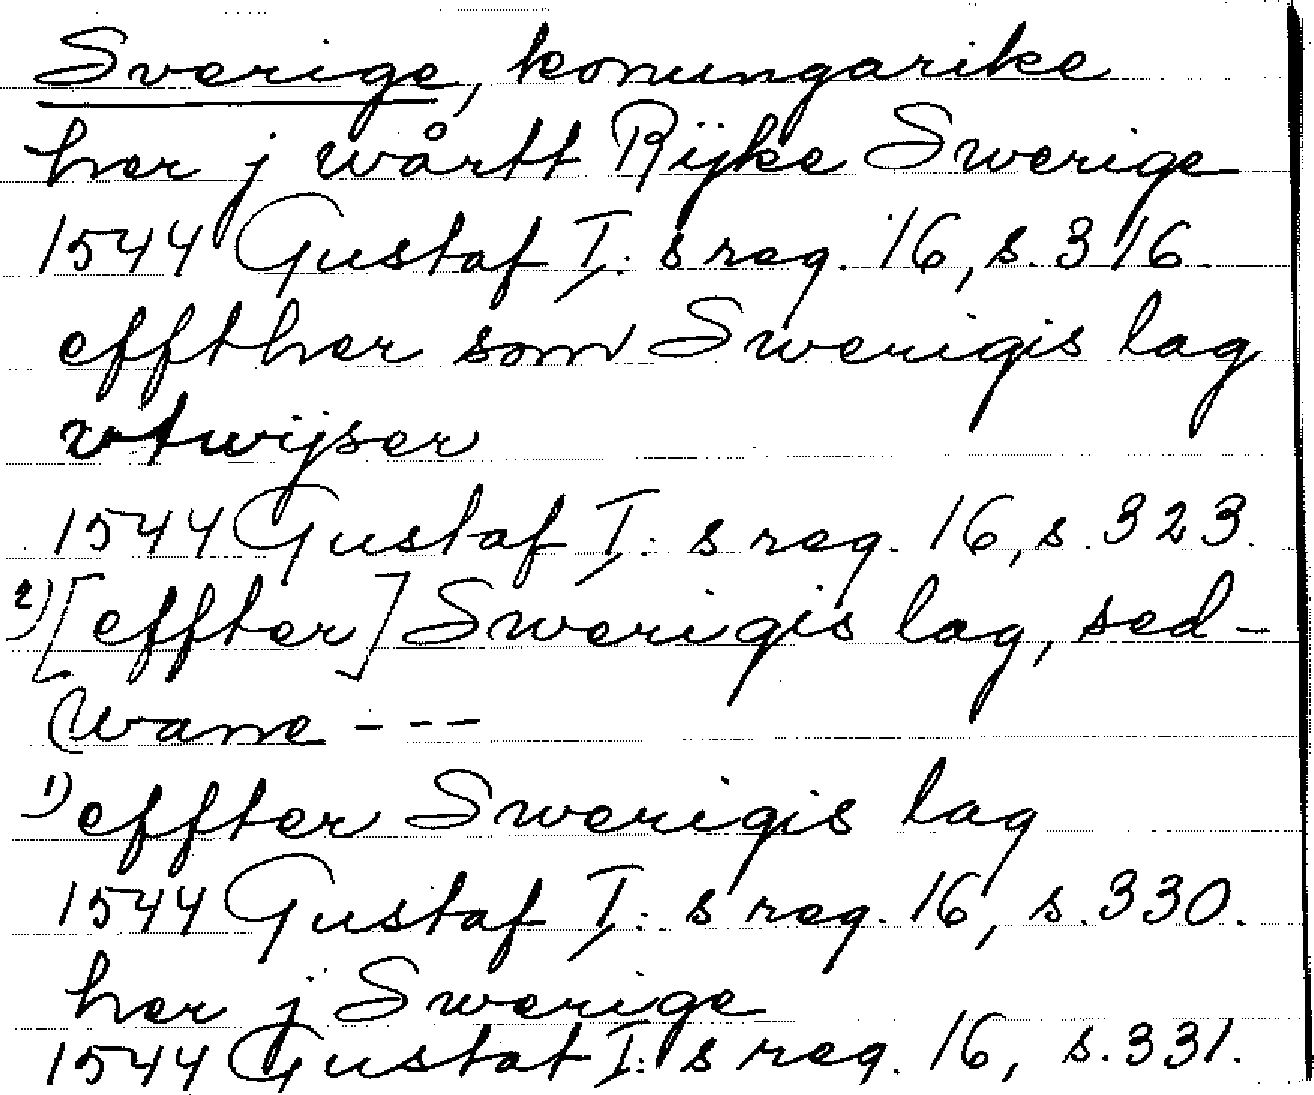 Sverige, konungarike
her j wårtt Rijke Swerige
1544 Gustaf I:s reg. 16, s. 316.
effther som Swerigis lag
vtwijser
1544 Gustaf I:s reg. 16, s. 323.
2) [effter] Swerigis lag, sed-
wane - - -
1) effter Swerigis lag
1544 Gustaf I:s reg. 16, s. 330.
her j Swerige
1544 Gustaf I:s reg. 16, s. 331.